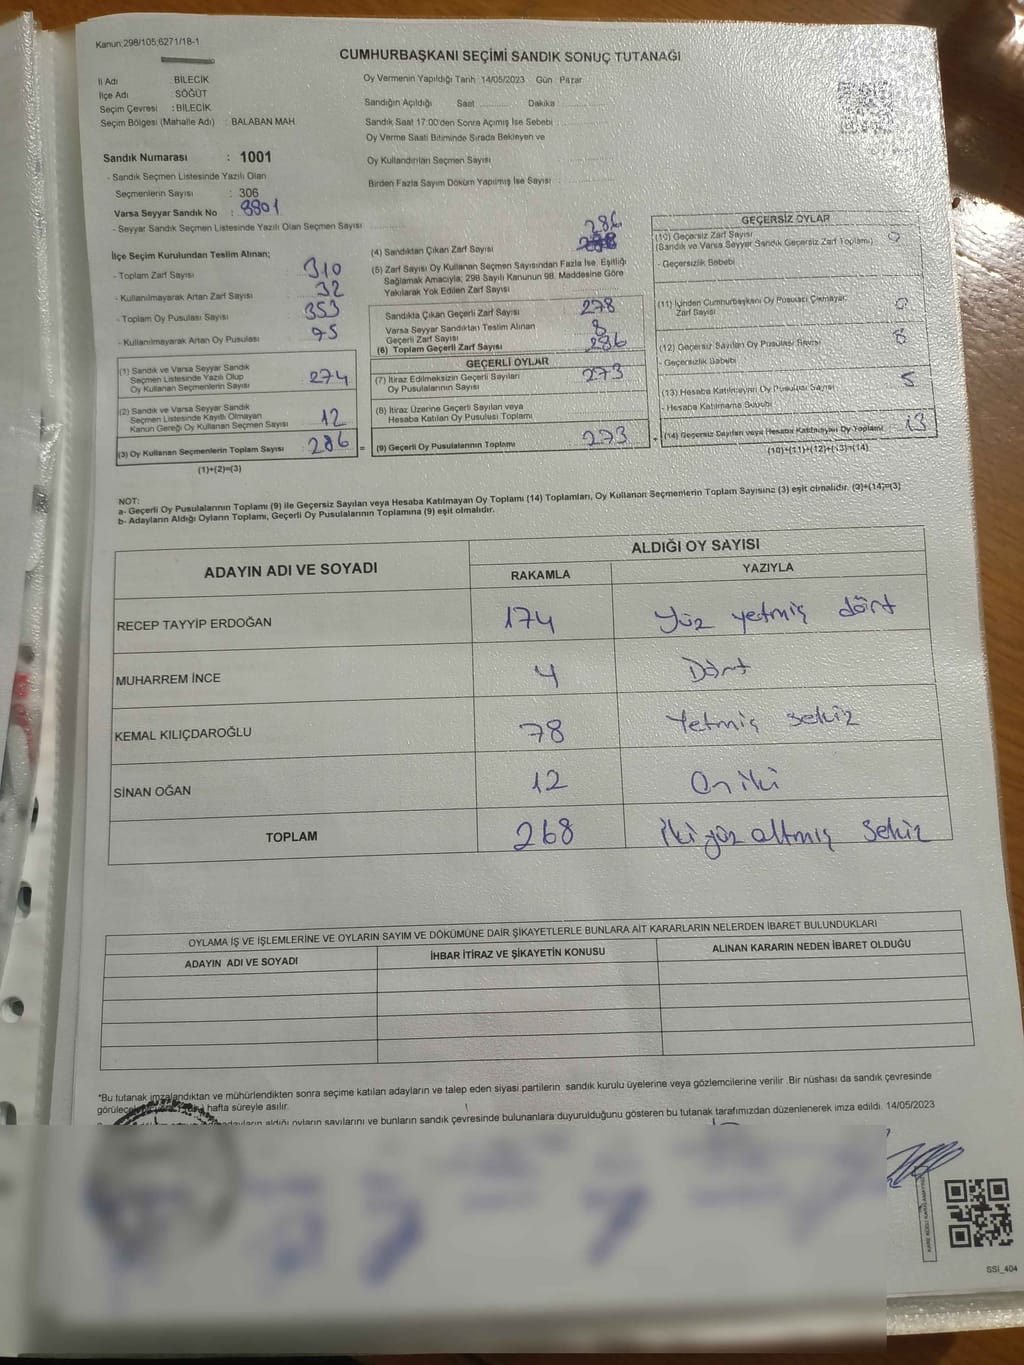 Kanun;298/105;6271/18-1
CUMHURBAŞKANI SEÇİMİ SANDIK SONUÇ TUTANAĞI
İl Adı : BİLECİK
İlçe Adı : SÖĞÜT
Seçim Çevresi : BİLECİK
Seçim Bölgesi (Mahalle Adı) : BALABAN MAH.
Sandık Numarası : 1001
- Sandık Seçmen Listesinde Yazılı Olan
Seçmenlerin Sayısı : 306
Varsa Seyyar Sandık No : 8901
- Seyyar Sandık Seçmen Listesinde Yazılı Olan Seçmen Sayısı
Oy Vermenin Yapıldığı Tarih 14/05/2023 Gün : Pazar
Sandığın Açıldığı Saat Dakika
Sandık Saat 17:00'den Sonra Açımış İse Sebebi
Oy Verme Saati Bitiminde Sırada Bekleyen ve
Oy Kullandırılan Seçmen Sayısı
Birden Fazla Sayım Döküm Yapılmış İse Sayısı
İlçe Seçim Kurulundan Teslim Alınan;
- Toplam Zarf Sayısı 310
- Kullanılmayarak Artan Zarf Sayısı 32
- Toplam Oy Pusulası Sayısı 353
- Kullanılmayarak Artan Oy Pusulası 75
(1) Sandık ve Varsa Seyyar Sandık
Seçmen Listesinde Yazılı Olup
Oy Kullanan Seçmenlerin Sayısı 274
(2) Sandık ve Varsa Seyyar Sandık
Seçmen Listesinde Kayıtlı Olmayan
Kanun Gereği Oy Kullanan Seçmen Sayısı 12
(3) Oy Kullanan Seçmenlerin Toplam Sayısı 286 =
(1)+(2)=(3)
286
(4) Sandıktan Çıkan Zarf Sayısı
(5) Zarf Sayısı Oy Kullanan Seçmen Sayısından Fazla İse, Eşitliği
Sağlamak Amacıyla; 298 Sayılı Kanunun 98. Maddesine Göre
Yakılarak Yok Edilen Zarf Sayısı
Sandıkta Çıkan Geçerli Zarf Sayısı 278
Varsa Seyyar Sandıktan Teslim Alınan
Geçerli Zarf Sayısı 8
(6) Toplam Geçerli Zarf Sayısı 286
GEÇERLİ OYLAR
(7) İtiraz Edilmeksizin Geçerli Sayılan
Oy Pusulalarının Sayısı 273
(8) İtiraz Üzerine Geçerli Sayılan veya
Hesaba Katılan Oy Pusulası Toplamı
(9) Geçerli Oy Pusulalarının Toplamı 273
GEÇERSİZ OYLAR
(10) Geçersiz Zarf Sayısı
(Sandık ve Varsa Seyyar Sandık Geçersiz Zarf Toplamı) 0
- Geçersizlik Sebebi
(11) İçinden Cumhurbaşkanı Oy Pusulası Çıkmayan
Zarf Sayısı 0
(12) Geçersiz Sayılan Oy Pusulası Sayısı 8
- Geçersizlik Sebebi
(13) Hesaba Katılmayan Oy Pusulası Sayısı 5
- Hesaba Katılmama Sebebi
(14) Geçersiz Sayılan veya Hesaba Katılmayan Oy Toplamı 13
(10)+(11)+(12)+(13)=(14)
NOT:
a- Geçerli Oy Pusulalarının Toplamı (9) ile Geçersiz Sayılan veya Hesaba Katılmayan Oy Toplamı (14) Toplamları, Oy Kullanan Seçmenlerin Toplam Sayısına (3) eşit olmalıdır. (9)+(14)=(3)
b- Adayların Aldığı Oyların Toplamı, Geçerli Oy Pusulalarının Toplamına (9) eşit olmalıdır.
ADAYIN ADI VE SOYADI ALDIĞI OY SAYISI
RAKAMLA YAZIYLA
RECEP TAYYİP ERDOĞAN 174 Yüz yetmiş dört
MUHARREM İNCE 4 Dört
KEMAL KILIÇDAROĞLU 78 Yetmiş sekiz
SİNAN OĞAN 12 On iki
TOPLAM 268 İki yüz altmış sekiz
OYLAMA İŞ VE İŞLEMLERİNE VE OYLARIN SAYIM VE DÖKÜMÜNE DAİR ŞİKAYETLERLE BUNLARA AİT KARARLARIN NELERDEN İBARET BULUNDUKLARI
ADAYIN ADI VE SOYADI İHBAR İTİRAZ VE ŞİKAYETİN KONUSU ALINAN KARARIN NEDEN İBARET OLDUĞU
*Bu tutanak imzalandıktan ve mühürlendikten sonra seçime katılan adayların ve talep eden siyasi partilerin sandık kurulu üyelerine veya gözlemcilerine verilir .Bir nüshası da sandık çevresinde
hafta süreyle asılır.
aldığı oyların sayılarını ve bunların sandık çevresinde bulunanlara duyurulduğunu gösteren bu tutanak tarafımızdan düzenlenerek imza edildi. 14/05/2023
SSİ_404